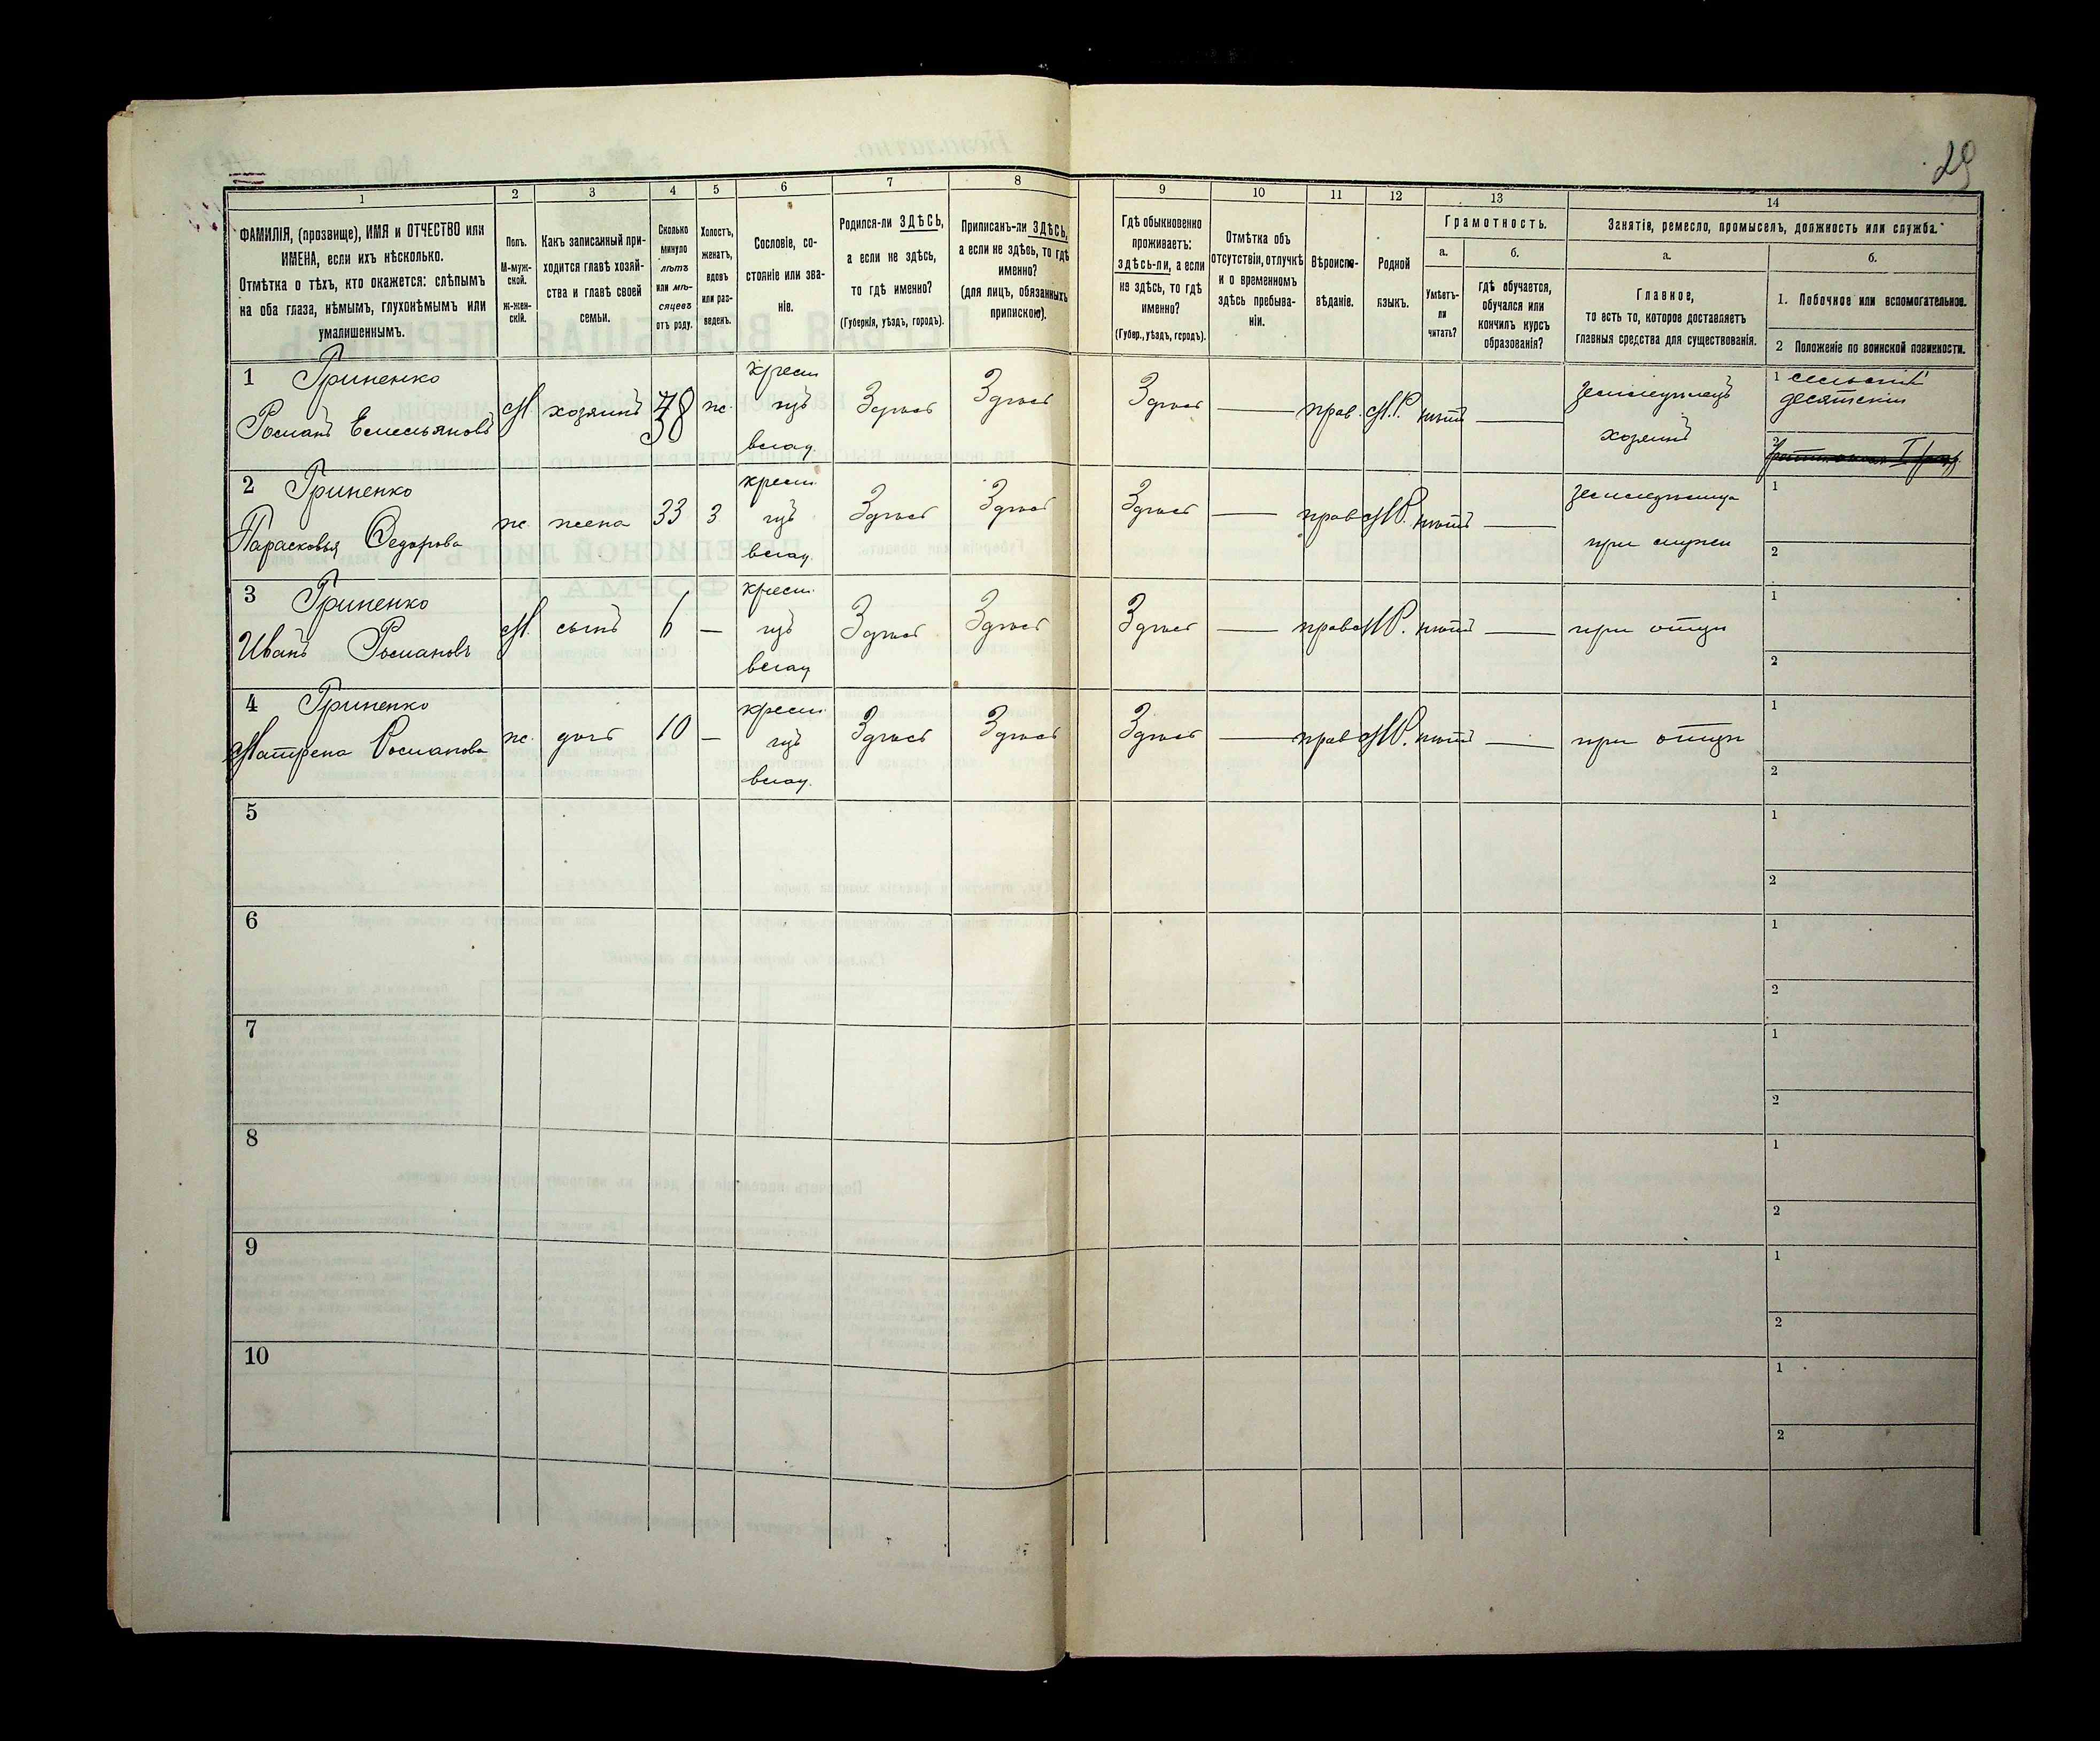 29
1 2 3 4 5 6 7 8 9 10 11 12 13 14
ФАМИЛІЯ, (прозвище), ИМЯ и ОТЧЕСТВО или
ИМЕНА, если ихъ нѣсколько.
Отмѣтка о тѣхъ, кто окажется: слѣпымъ
на оба глаза, нѣмымъ, глухонѣмымъ или
умалишеннымъ.
Полъ.
М-муж-
ской.
Ж-жен-
скій.
Какъ записанный при-
ходится главѣ хозяй-
ства и главѣ своей
семьи.
Сколько
минуло
лѣтъ
или мѣ-
сяцевъ
отъ роду.
Холостъ,
женатъ,
вдовъ
или раз-
веденъ.
Сословіе, со-
стояніе или зва-
ніе.
Родился-ли ЗДѢСЬ,
а если не здѣсь,
то гдѣ именно?
(Губернія, уѣздъ, городъ).
Приписанъ-ли ЗДѢСЬ,
а если не здѣсь, то гдѣ
именно?
(для лицъ, обязанныхъ
припискою).
Гдѣ обыкновенно
проживаетъ:
здѣсь-ли, а если
не здѣсь, то гдѣ
именно?
(Губер., уѣздъ, городъ).
Отмѣтка объ
отсутствіи, отлучкѣ
и о временномъ
здѣсь пребыва-
ніи.
Вѣроиспо-
вѣданіе.
Родной
языкъ.
Грамотность.
а.
Умѣетъ-
ли
читать?
б.
гдѣ обучается,
обучался или
кончилъ курсъ
образованія?
Занятіе, ремесло, промыселъ, должность или служба.
а.
Главное,
то есть то, которое доставляетъ
главныя средства для существованія.
б.
1. Побочное или вспомогательное.
2 Положеніе по воинской повинности.
1 Гриненко
Романъ Емельяновъ
М. хозяинъ 38 ж.
крест
изъ
влад.
Здѣсь Здѣсь Здѣсь — прав. М.Р. нѣтъ —
земледѣлецъ
хозяинъ
1 сельскій
десятскій
2
2 Гриненко
Парасковья Федорова
ж. жена 33 з
крест.
изъ
влад.
Здѣсь Здѣсь Здѣсь — прав М.Р. нѣтъ —
при мужи
1
2
3 Гриненко
Иванъ Романовъ
М. сынъ 6 —
крест.
изъ
влад
Здѣсь Здѣсь Здѣсь — прав М.Р. нѣтъ — при отци
1
2
4 Гриненко
Матрена Романова
ж. дочь 10 —
крест.
изъ
влад.
Здѣсь Здѣсь Здѣсь — прав М.Р. нѣтъ — при отци
1
2
5 1
2
6 1
2
7 1
2
8 1
2
9 1
2
10 1
2